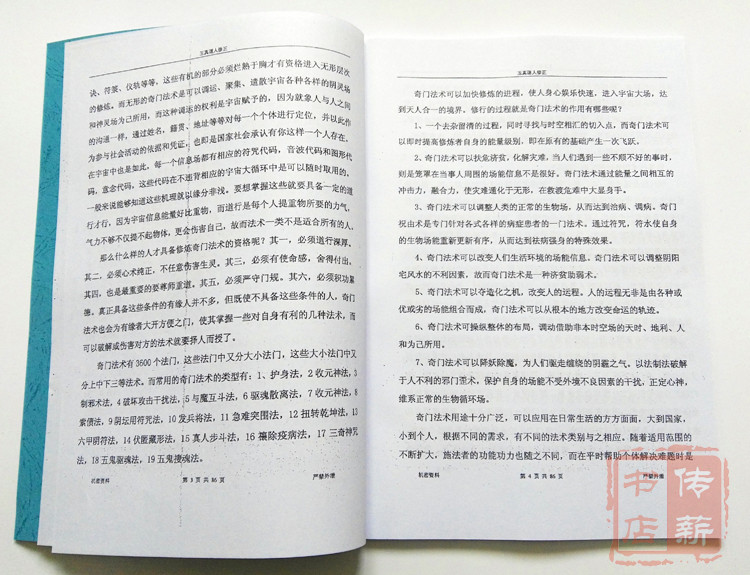 玉真道人修正
诀、符箓、仪轨等等，这些有机的部分必须烂熟于胸才有资格进入无形层次
的修炼。而无形的奇门法术是可以调运、聚集、遣散宇宙各种各样的阴灵场
和神灵场为己所用，而这种调运的权利是宇宙赋予的，因为就象人与人之间
的沟通一样，通过姓名，籍贯、地址等等对每一个个体进行定位，并以此作
为参与社会活动的依据和凭证，也即是国家社会承认有你这样一个人存在。
在宇宙中也是如此，每一个信息场都有相应的符咒代码，音波代码和图形代
码，意念代码，这些代码在不违背相应的宇宙大循环中是可以随时取用的，
一般来说能够知道这些机理就以缘分非浅。要想掌握这些就要具备一定的道
行才行，因为宇宙信息能量好比重物，而道行是每个人提重物所要的力气，
气力不够不仅提不起物体，更会伤害自己，故而法术一类不是适合所有的人。
那么什么样的人才具备修炼奇门法术的资格呢？其一，必须道行深厚、
其二，必须心术纯正，不任意伤害生灵。其三，必须有使命感，舍得付出。
其四，也是最重要的要尊师重道。其五，必须严守门规。其六，必须积功累
德。真正具备这些条件的有缘人并不多，但既使不具备这些条件的人，奇门
法术也会为有缘者大开方便之门，使其掌握一些对自身有利的几种法术，而
可以破解或伤害对方的法术就要择人而授了。
奇门法术有 3600 个法门，这些法门中又分大小法门，这些大小法门中又
分上中下三等法术。而常用的奇门法术的类型有：1、护身法，2 收元神法，3
制邪术法，4 破坏攻击干扰法，5 与魔互斗法，6 驱魂散离法，7 收元神法，8
索债法，9 阴坛用符咒法，10 发兵将法，11 急难突围法，12 扭转乾坤法，13
六甲阴符法，14 伏匿藏形法，15 真人步斗法，16 禳除疫病法，17 三奇神咒
法，18 五鬼驱魂法，19 五鬼搜魂法。
机密资料 第 3 页 共 86 页 严禁外泄
玉真道人修正
奇门法术可以加快修炼的进程，使人身心娱乐快速，进入宇宙大场，达
到天人合一的境界，修行的过程就是奇门法术的作用有哪些呢？
1、一个去杂留清的过程，同时寻找与时空相汇的切入点，而奇门法术可
以即时提高修炼者自身的能量级别，即在原有的基础产生一次飞跃。
2、奇门法术可以扶危济贫，化解灾难，当人们遇到一些不顺不好的事时，
则是笼罩在当事人周围的场能信息不是很好。奇门法术通过能量之间相互的
冲击力，融合力，使灾难逢化于无形，在救渡危难中大显身手。
3、奇门法术可以调整人类的正常的生物场，从而达到治病、调病。奇门
祝由术是专门针对各式各样的病症患者的一门法术。通过符咒，符水使自身
的生物场能重新更新有序，从而达到祛病强身的特殊效果。
4、奇门法术可以改变人们生活环境的场能信息。奇门法术可以调整阴阳
宅风水的不利因素，故而奇门法术是一种济贫助弱术。
5、奇门法术可以夺造化之机，改变人的运程。人的运程无非是由各种或
优或劣的场能组合而成，奇门法术可以从根本的地方改变命运的轨迹。
6、奇门法术可操纵整体的布局，调动借助非本时空场的天时、地利、人
和为己所用。
7、奇门法术可以降妖除魔，为人们驱走缠绕的阴霾之气。以法制法破解
于人不利的邪门歪术，保护自身的场能不受外境不良因素的干扰，正定心神，
维系正常的生物循环场。
奇门法术用途十分广泛，可以应用在日常生活的方方面面，大到国家，
小到个人，根据不同的需求，有不同的法术类别与之相应。随着适用范围的
不断扩大，施法者的功能功力也随之不同，而在平时帮助个体解决难题时是
机密资料 第 4 页 共 86 页 严禁外泄
传薪
书店